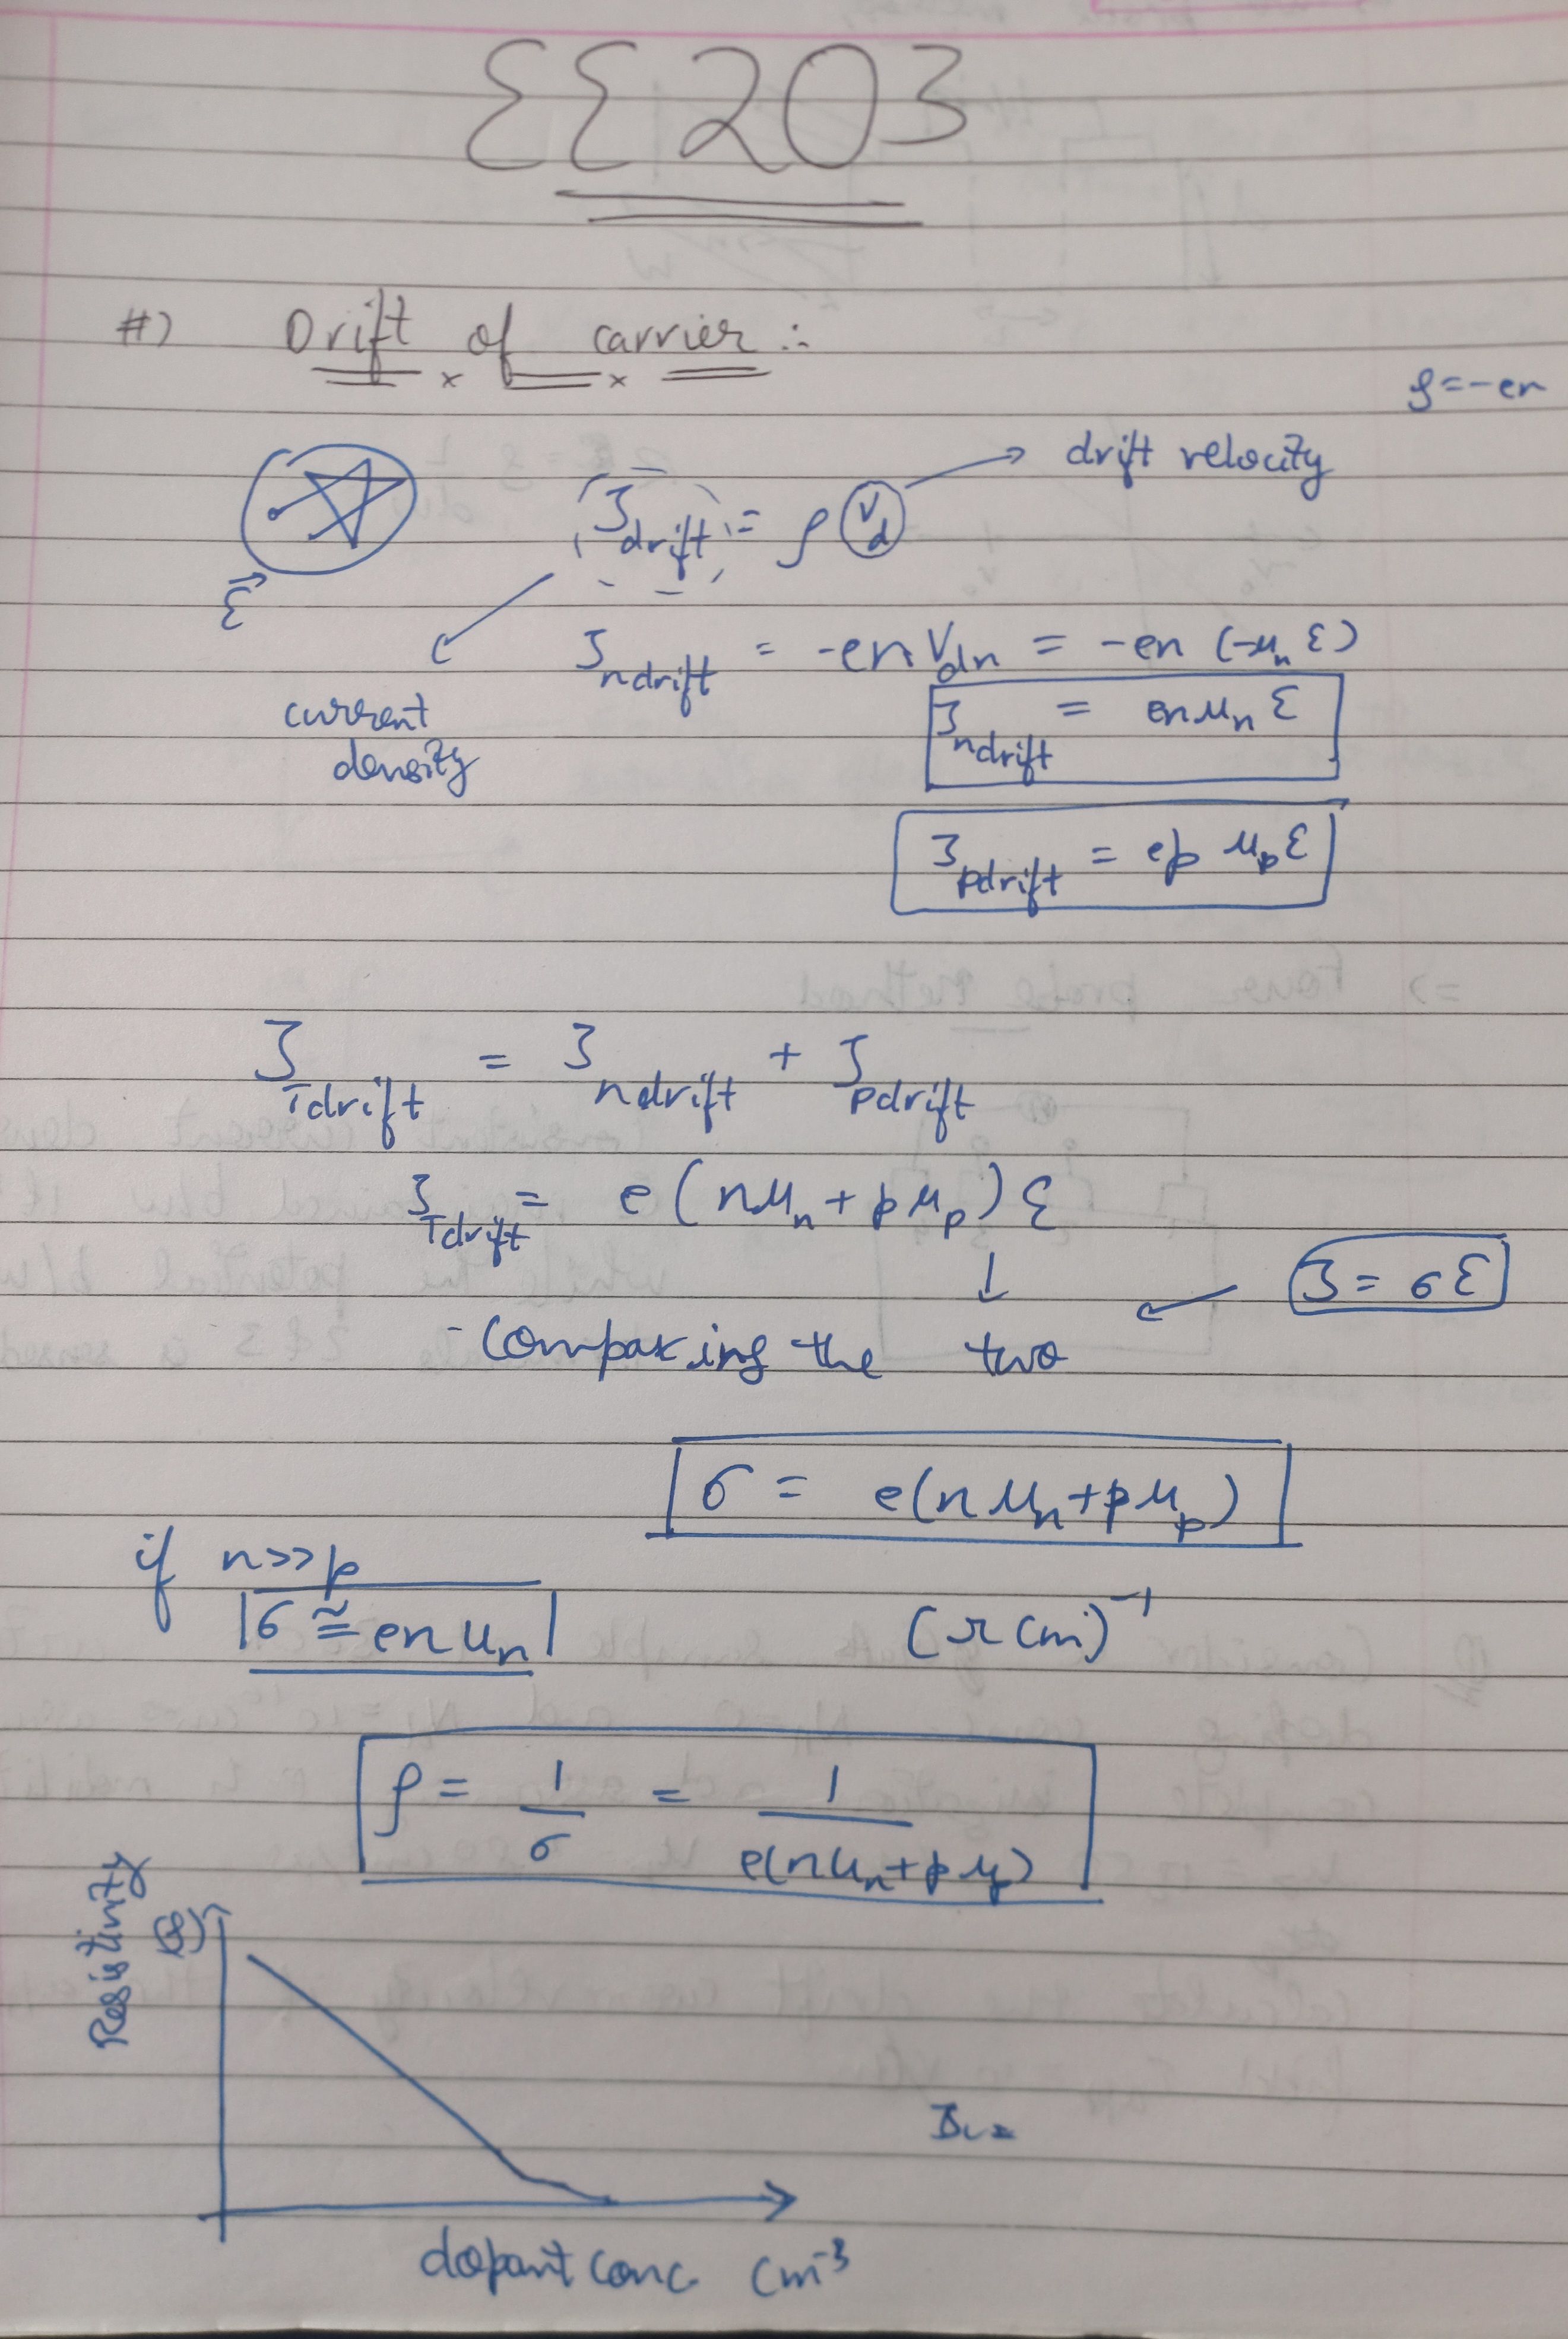 EE203
#) Drift of carrier :-
ρ = -en
J_drift = ρ V_d → drift velocity
ε⃗
current density
J_ndrift = -en V_dn = -en (-μ_n ε)
J_ndrift = enμ_n ε
J_pdrift = ep μ_p ε
J_Tdrift = J_ndrift + J_pdrift
J_Tdrift = e (nμ_n + pμ_p) ε
J = σε
- Comparing the two
σ = e(nμ_n + pμ_p)
if n>>p
σ ≅ enμ_n
(Ω cm)^-1
ρ = 1/σ = 1/e(nμ_n + pμ_p)
Resistivity
(ρ)
dopant conc. cm^-3